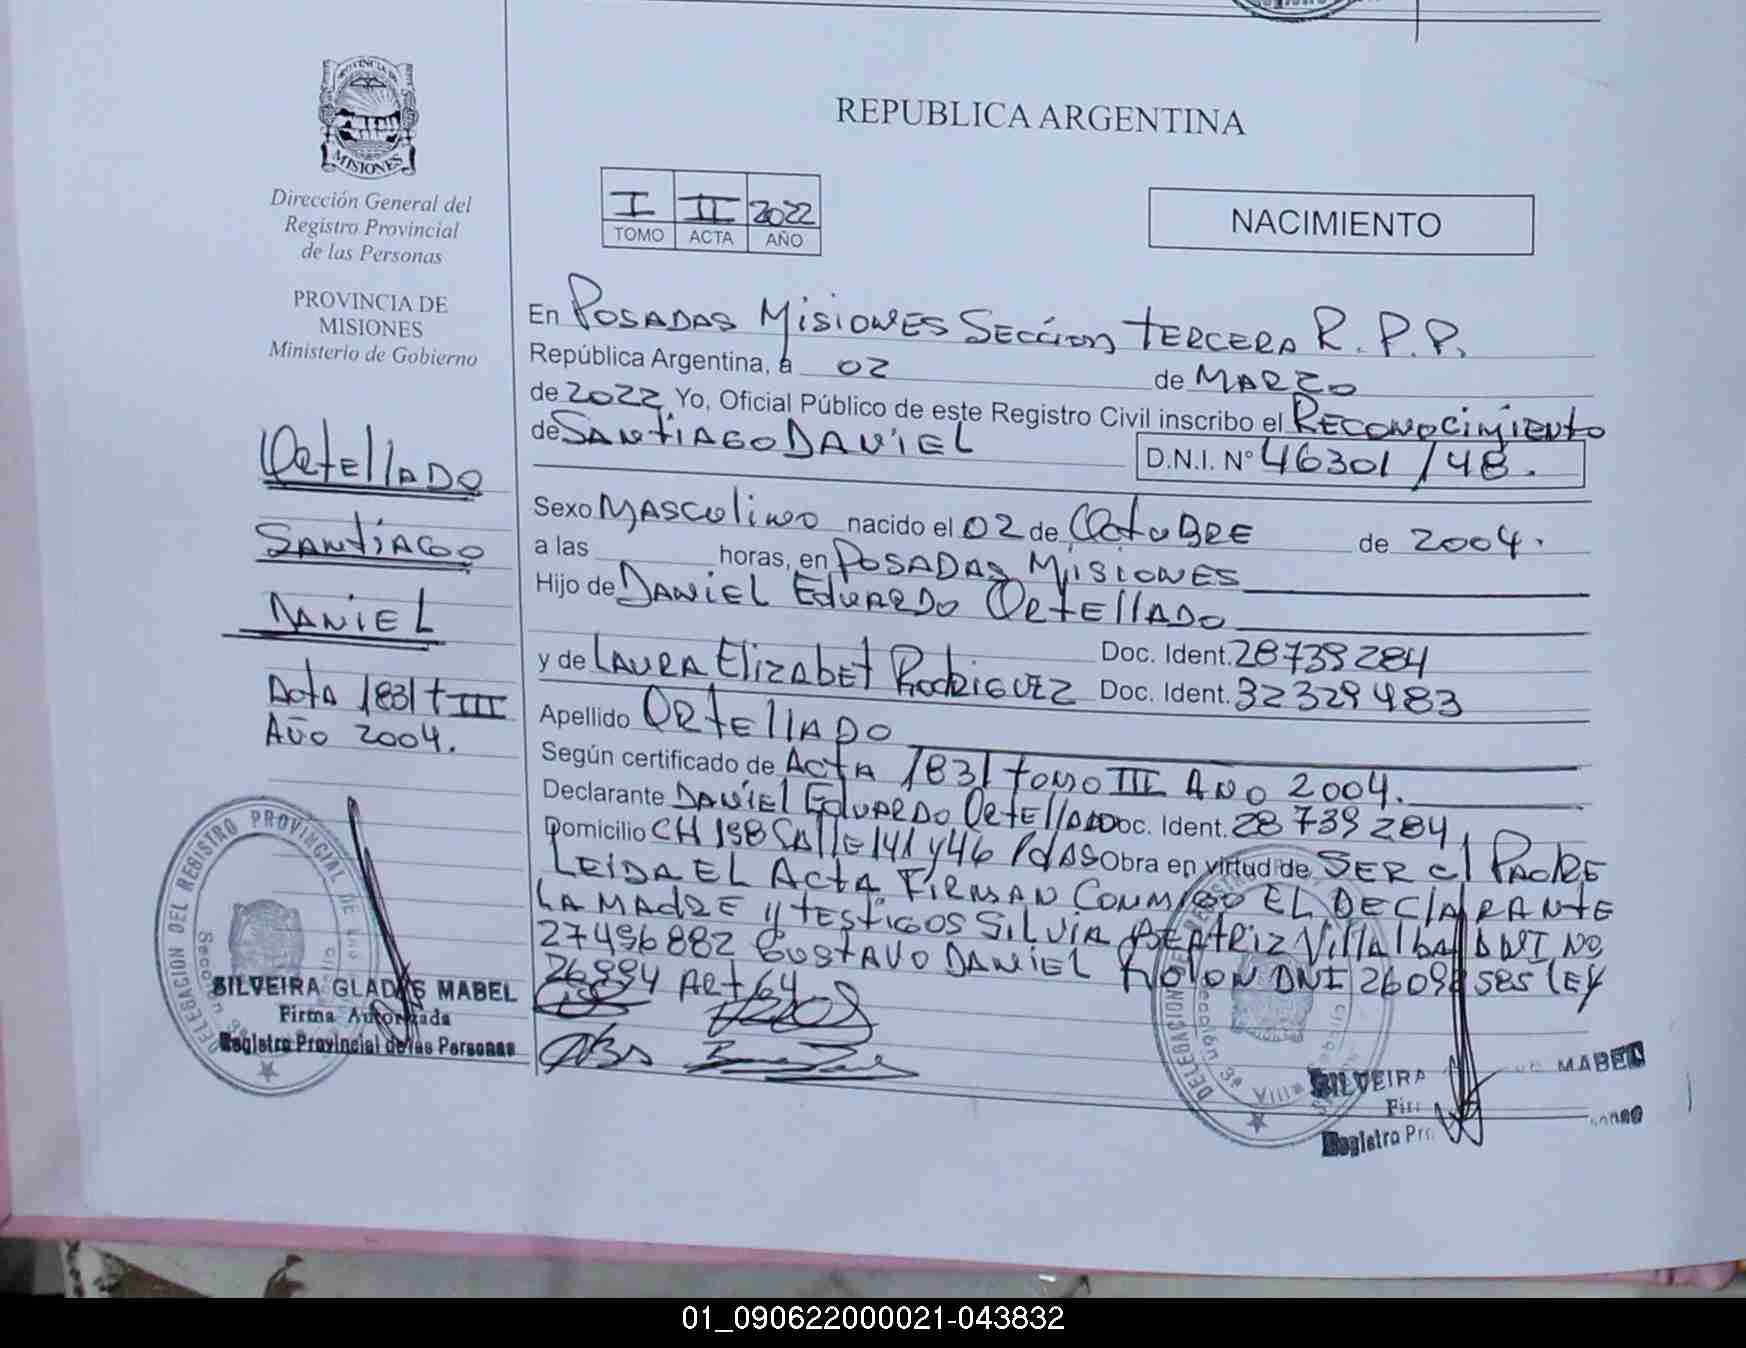 PROVINCIA DE
MISIONES
Dirección General del
Registro Provincial
de las Personas
PROVINCIA DE
MISIONES
Ministerio de Gobierno
ORtEllADO
SANtiAGO
DANiEL
Acta 1831 t III
Año 2004.
DELEGACION DEL REGISTRO PROVINCIAL DE
SILVEIRA GLADYS MABEL
Firma Autorizada
Registro Provincial de las Personas
REPUBLICA ARGENTINA
I II 2022
TOMO ACTA AÑO
NACIMIENTO
En POSADAS MisiONES SEccion tERCERA R.P.P.
República Argentina, a 02 de MARZO
de 2022 Yo, Oficial Público de este Registro Civil inscribo el REcONOcimiENto
de SANtiAGO DANiEL D.N.I. N° 46301748.
Sexo MAScUliNO nacido el 02 de OctuBRE de 2004.
a las horas, en POSADAS MiSiONES
Hijo de DANiEL EduARDO ORtEllADO
Doc. Ident. 28739284
y de LAURA ElizABEt RodRiGUEZ Doc. Ident. 32329483
Apellido ORtEllADO
Según certificado de ActA 1831 tOMO III AñO 2004.
Declarante DANiEL EduARDO ORtEllADO Doc. Ident. 28739284
Domicilio CH 198 CAllE 141 y 46 PdAS Obra en virtud de SER El PAdRE
LEIDA EL ActA FiRMAN CONMIGO EL DEClARANtE
LA MAdRE y tEStiGOS SiLViA BEAtRiz VillAlBA DNI NO
27496882 GUStAVO DANiEL ROLON DNI 26098585 lEy
26994 ARt 64
DELEGACION
SILVEIRA MABEL
Registro
01_090622000021-043832